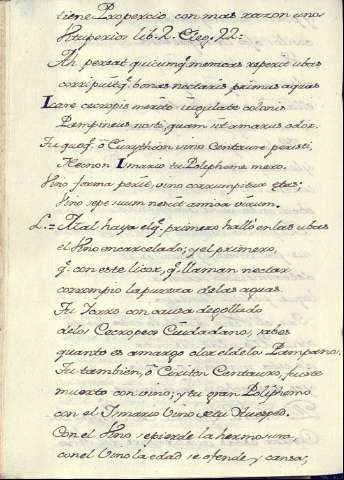 tiene Propercio con mas razon unos
Vituperios lib. 2. Eleg. 22=
Ah pereat quicumq; meracas reperit ubas
corripuitq; bonas nectaris primus aquas
Icare cecropis merito iugulate colonis
Pampineus nosti, quam sit amarus odor
Tu quoq; ô Eurythion vino Centaure peristi,
Necnon Ismario tu Polipheme mero.
Vino forma perit, vino corrumpitur etas;
Vino sepe suum nescit amica virum.
L.= Mal haya elq. primero halló en las ubas
el Vino encarcelado; y el primero,
q. con este licor, q. llaman nectar
corrompio la pureza de las aguas.
Tu Icaro con causa degollado
delos Cecropeos Ciudadanos, sabes
quanto es amargo olor el delos Pampanos.
Tu tambien, ô Curiton Centauro, fuiste
muerto con vino; y tu gran Poliphemo
con el Ismario Vino de tu Huesped.
Con el Vino sepierde la hermosura
con el Vino la edad se ofende y cansa;